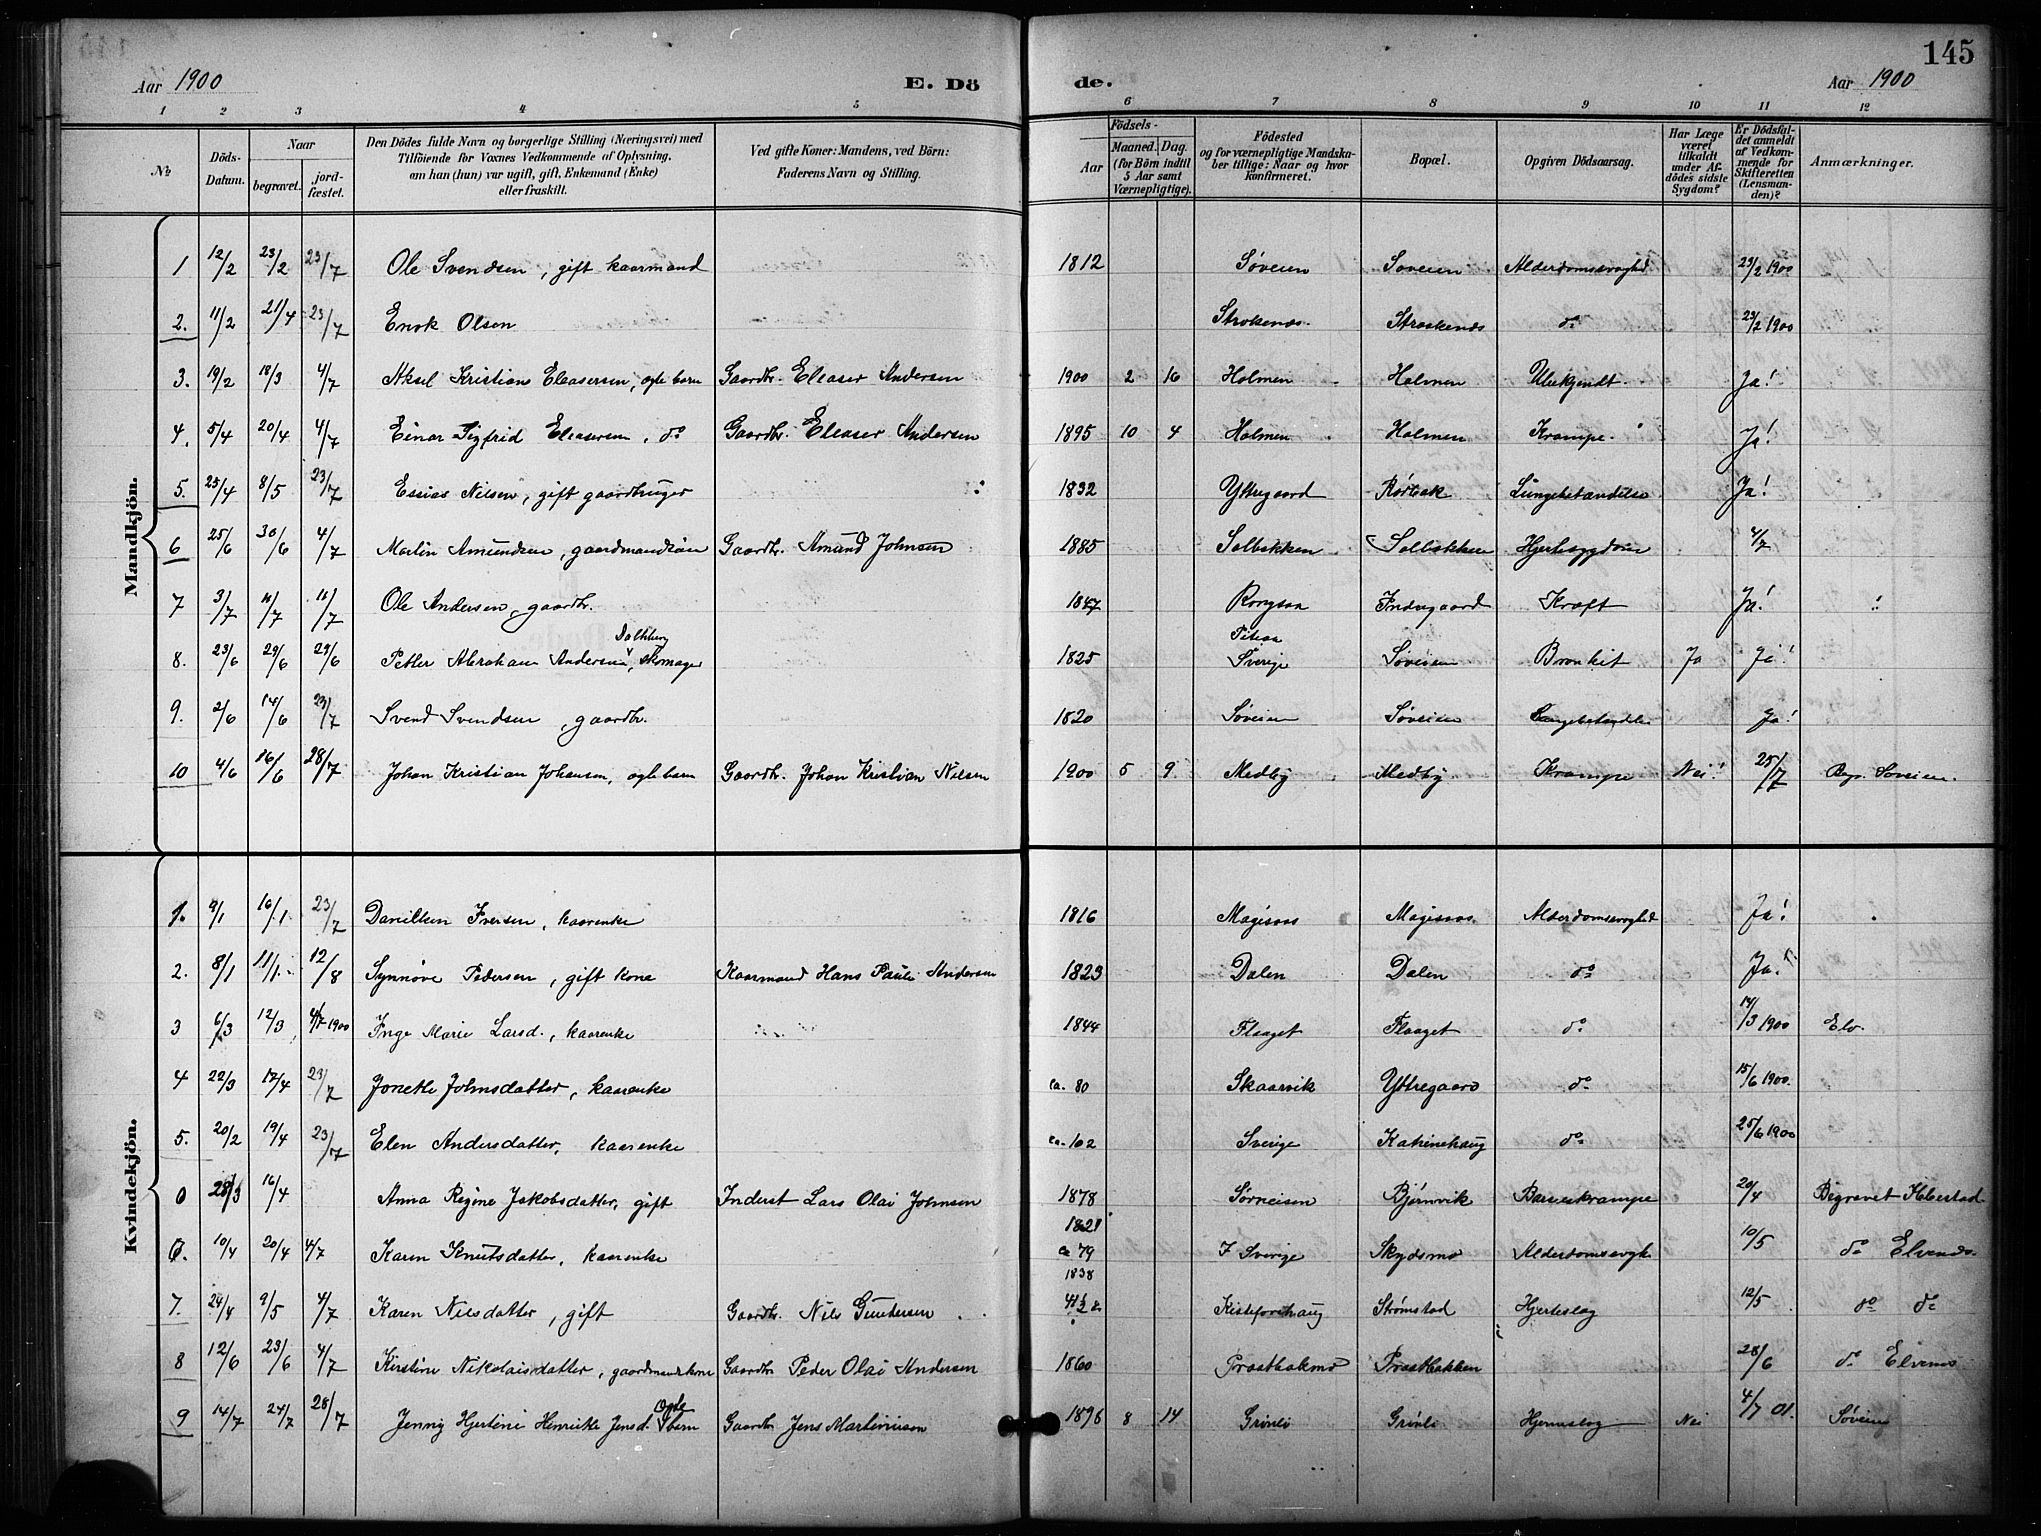 145
Aar 1900 E. Dö de. Aar 1900
1 2 3 4 5 6 7 8 9 10 11 12
№ Döds-Datum. Naar begravet. jord-fæstet. Den Dödes fulde Navn og borgerlige Stilling (Næringsvei) med Tilföiende for Voxnes Vedkommende af Oplysning, om han (hun) var ugift, gift, Enkemand (Enke) eller fraskilt. Ved gifte Koner: Mandens, ved Börn: Faderens Navn og Stilling. Födsels- Aar Maaned. Dag. (for Börn indtil 5 Aar samt Værnepligtige). Födested og for værnepligtige Mandskaber tillige: Naar og hvor konfirmeret. Bopæl. Opgiven Dödsaarsag. Har Læge været tilkaldt under Afdödes sidste Sygdom? Er Dödsfaldet anmeldt af Vedkommende for Skifteretten (Lensmanden)? Anmærkninger.
Mandkjön.
1 12/2 23/2 23/7 Ole Svendsen, gift kaarmand 1812 Söveien Soveien Alderdomssvaghed 23/2 1900
2. 11/2 21/4 23/7 Enok Olsen Strokenæs Straokenæs do 23/2 1900
3. 19/2 18/3 4/7 Aksel Kristians Eleasersen, egte barn Gaardbr. Eleaser Andersen 1900 2 16 Holmen Holmen Ubekjendt Ja!
4. 5/4 20/4 4/7 Einar Sigfrid Eleasersen, do Gaardbr. Eleaser Andersen 1895 10 4 Holmen Holmen Krampe Ja!
5. 25/4 8/5 23/7 Essias Nilsen, gift gaardbruger 1832 Yttregaard Rørbak Lungebetændelse Ja!
6 25/6 30/6 4/7 Martin Amundsen, gaardmandssøn Gaardbr. Amund Johnsen 1885 Solbakken Solbakken Hjertesygdom 4/7
7 3/7 11/7 11/7 Ole Andersen, gaardbr. 1847 Indregaard Kræft Ja!
8. 23/6 29/6 29/6 Petter Abraham Andersen Dalhberg, skomager 1825 Piteaa Sverige Søveien Bronkit Ja Ja!
9. 2/6 14/6 23/7 Svend Svendsen, gaardbr. 1820 Søveien Søveien Lungebetændelse Ja!
10 4/6 16/6 28/7 Johan Kristian Johansen, egte barn Gaardbr. Johan Kristian Nilsen 1900 5 9 Medby Medby Krampe Nei! 25/7 Begr. Soveien.
Kvindekjön.
1. 9/1 16/1 23/7 Danilken Iversen, kaarenke 1816 Magisaas Magisaas Alderdomssvaghed Ja!
2. 8/1 11/1 12/8 Synnøve Pedersen, gift kone Kaarmand Hans Pauli Andersen 1823 Dalen Dalen do Ja!
3 6/3 12/3 4/7 1900 Inge Marie Larsd., kaarenke 1844 Flaaget Flaaget do 14/3 1900 Elv.
4 22/3 17/4 23/7 Jonette Johnsdatter, kaarenke ca. 80 Skaarvik Yttregaard do 15/6 1900.
5. 20/2 19/4 23/7 Elen Andersdatter, kaarenke ca. 102 Sverige Katrinehaug do 25/6 1900
0 28/3 16/4 Anna Regine Jakobsdatter, gift Inderst Lars Olai Johnsen 1878 Sørreisen Bjørnvik Barselskrampe 20/4 Begravet Kbestad
6. 10/4 20/4 4/7 Karen Knutsdatter, kaarenke 1821 ca 79 I Sverige Skydsmo Alderdomssvagh. 10/5 do Elvenæs.
7. 24/4 9/5 4/7 Karen Nilsdatter, gift Gaardbr. Nils Guntersen 1838 Kistefosshaug Strømstad Hjerteslag 12/5 do do
8 12/6 23/6 4/7 Kirstine Nikolaisdatter, gaardmandskone Gaardbr. Peder Olai Andersen 1860 Prostbakmo Prostbakken 28/6 do Elvenes
9 14/7 24/7 28/7 Jenny Hjertine Henrikke Jensd. Egte barn Gaardbr Jens Martinussen 1896 8 14 Grønli Grønli Hjerneslag Nei 4/7 01. Søveien